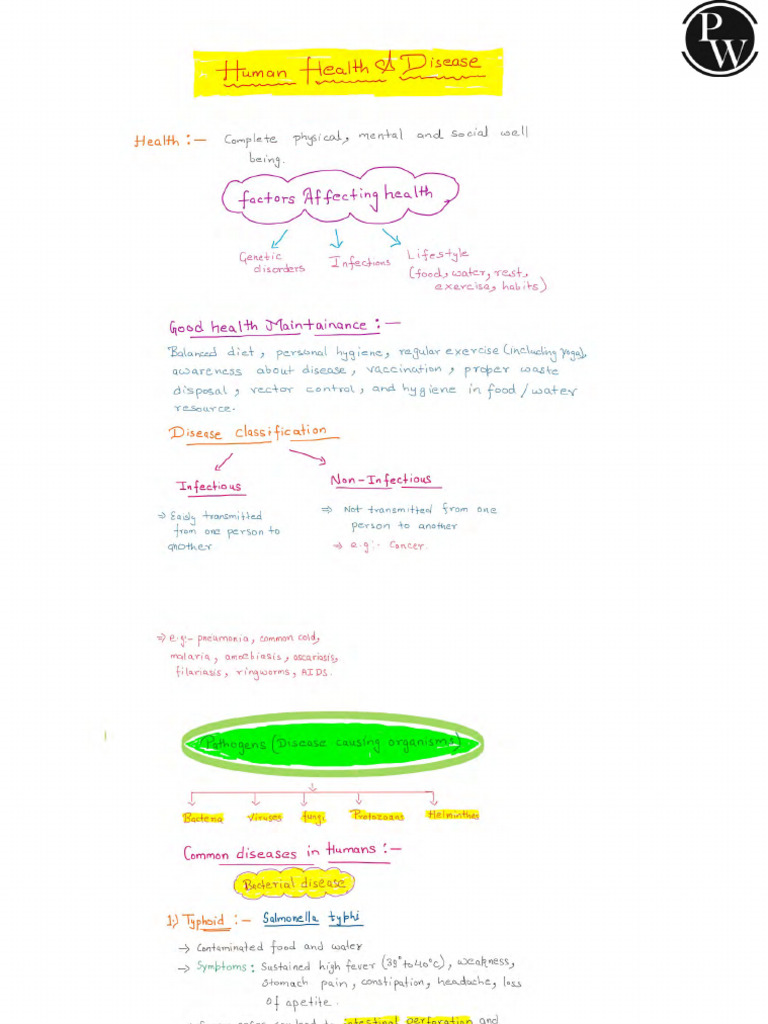 PW
Human Health & Disease
Health :— Complete physical, mental and social well
being.
factors Affecting health
Genetic
disorders
Infections
Lifestyle
(food, water, rest,
exercise, habits)
Good health Maintainance :—
Balanced diet, personal hygiene, regular exercise (including yoga),
awareness about disease, vaccination, proper waste
disposal, vector control, and hygiene in food/water
resource.
Disease classification
Infectious
⇒ Easily transmitted
from one person to
another
Non-Infectious
⇒ Not transmitted from one
person to another
⇒ e.g:- Cancer.
⇒ e.g:- pneumonia, common cold,
malaria, amoebiasis, ascariasis,
filariasis, ringworms, AIDS.
Pathogens (Disease causing organisms)
Bacteria Viruses fungi Protozoans Helminthes
Common diseases in Humans :—
Bacterial disease
1.) Typhoid :— Salmonella typhi
→ Contaminated food and water
→ Symptoms : Sustained high fever (39° to 40°C), weakness,
stomach pain, constipation, headache, loss
of apetite.
intestinal perforation and